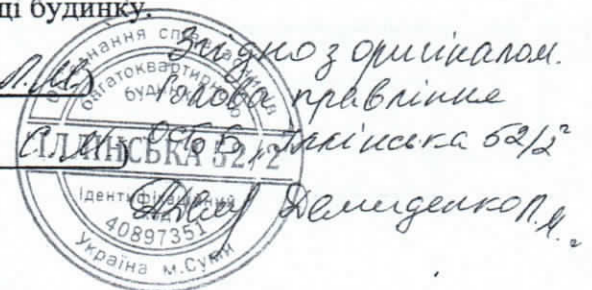 ці будинку.
Згідно з оригіналом.
Л.М.)
Голова правління
ОСББ "Іллінська 52/2"
Демиденко Л.М.
об'єднання співвласників
багатоквартирного
будинку
"ІЛЛІНСЬКА 52/2"
Ідентифікаційний
код
40897351
Україна м.Суми